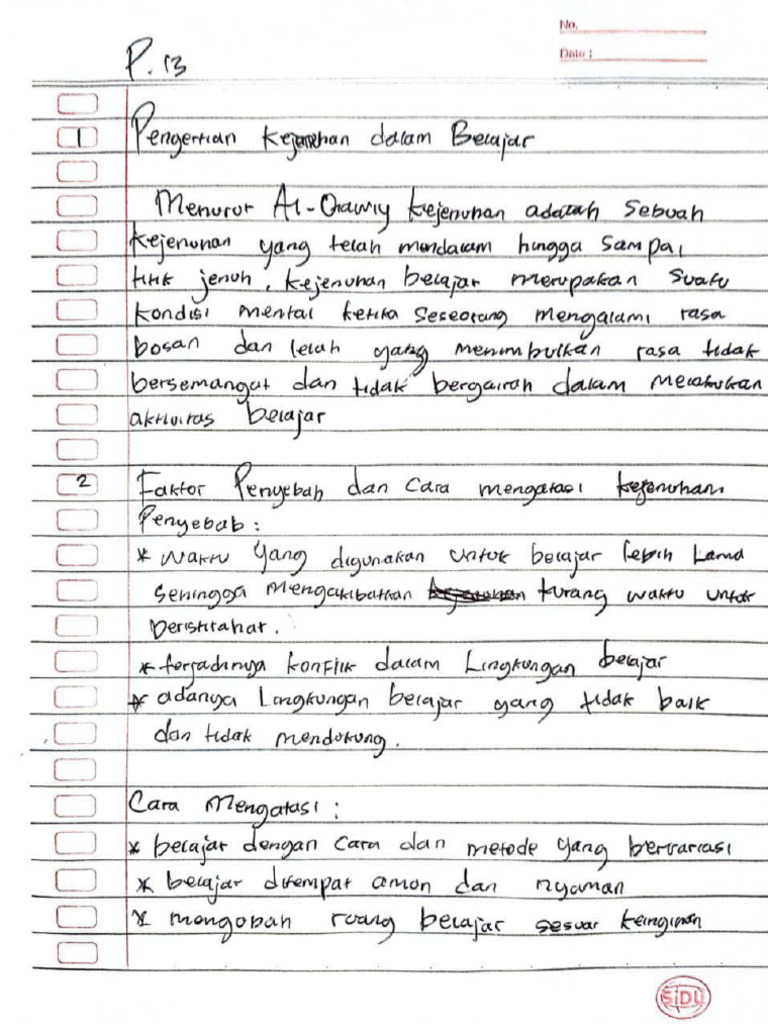 No.
Date :
P. 13
1 Pengertian Kejenuhan dalam Belajar
Menurut Al-Qawiy kejenuhan adalah sebuah
kejenuhan yang telah mendalam hingga sampai
titik jenuh, kejenuhan belajar merupakan suatu
kondisi mental ketika seseorang mengalami rasa
bosan dan lelah yang menimbulkan rasa tidak
bersemangat dan tidak bergairah dalam melakukan
aktivitas belajar
2 Faktor Penyebab dan Cara mengatasi kejenuhan
Penyebab :
* waktu yang digunakan untuk belajar lebih lama
sehingga mengakibatkan kurang waktu untuk
beristirahat.
* terjadinya konflik dalam Lingkungan belajar
* adanya Lingkungan belajar yang tidak baik
dan tidak mendukung.
Cara Mengatasi :
* belajar dengan cara dan metode yang bervariasi
* belajar ditempat aman dan nyaman
* mengubah ruang belajar sesuai keinginan
SiDU